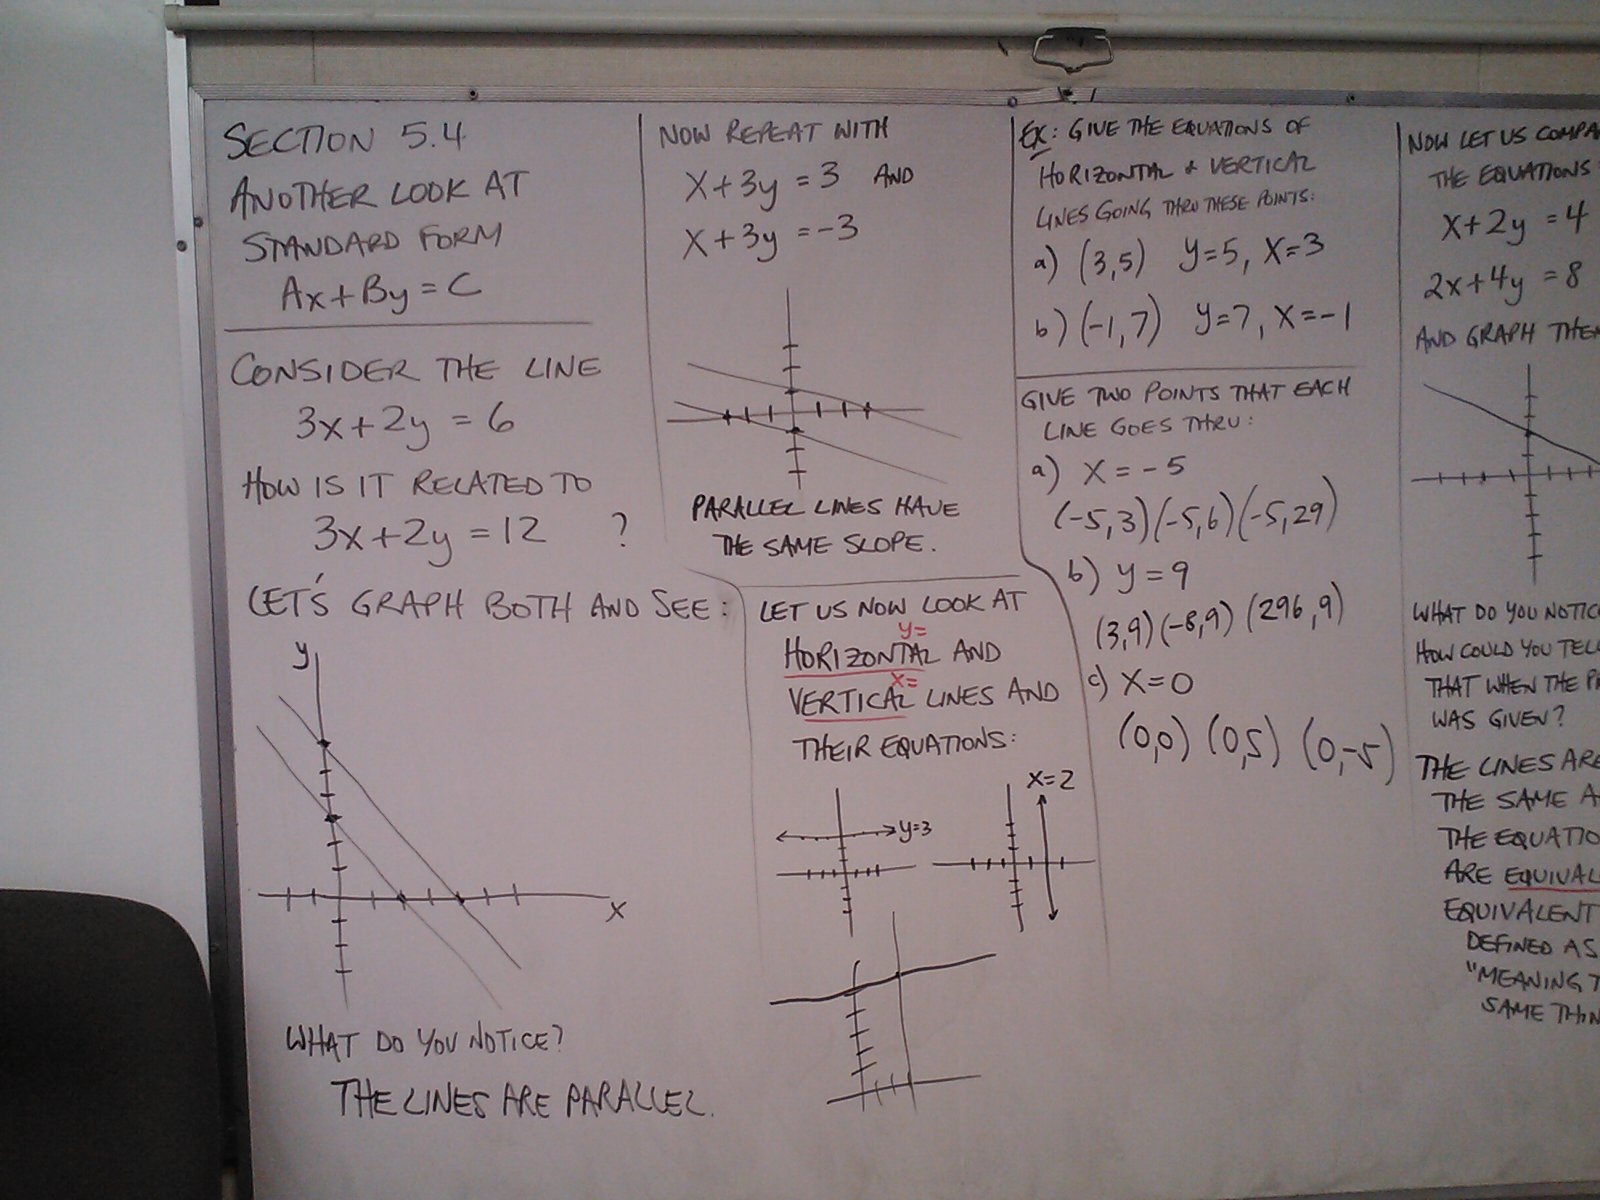 SECTION 5.4
ANOTHER LOOK AT
STANDARD FORM
Ax+By=C
CONSIDER THE LINE
3x+2y=6
HOW IS IT RELATED TO
3x+2y=12 ?
LET'S GRAPH BOTH AND SEE:
y
x
WHAT DO YOU NOTICE?
THE LINES ARE PARALLEL.
NOW REPEAT WITH
x+3y=3 AND
x+3y=-3
PARALLEL LINES HAVE
THE SAME SLOPE.
LET US NOW LOOK AT
y=
HORIZONTAL AND
x=
VERTICAL LINES AND
THEIR EQUATIONS:
y=3
x=2
EX: GIVE THE EQUATIONS OF
HORIZONTAL + VERTICAL
LINES GOING THRU THESE POINTS:
a) (3,5) y=5, x=3
b) (-1,7) y=7, x=-1
GIVE TWO POINTS THAT EACH
LINE GOES THRU:
a) x=-5
(-5,3)(-5,6)(-5,29)
b) y=9
(3,9)(-8,9)(296,9)
c) x=0
(0,0) (0,5) (0,-5)
NOW LET US
THE EQUATIONS
x+2y=4
2x+4y=8
AND GRAPH
WHAT DO YOU
HOW COULD YOU
THAT WHEN THE
WAS GIVEN?
THE LINES ARE
THE SAME
THE
ARE
EQUIVALENT
DEFINED AS
"MEANING
SAME